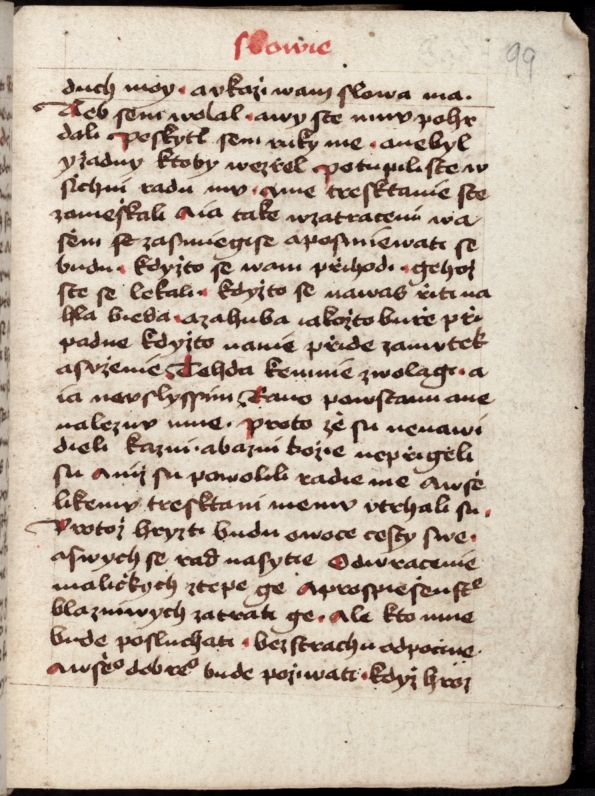 slowie
99
duch moy · a vkazi wam slowa ma ·
Neb sem wolal · a wy ste mnu pohr
dali Poskytl sem ruky me · a nebyl
y zadny ktoby wezrel Potupili ste w
sichni radu mu · a me tresktanie ste
zameskali A ia take w zatraceni wa
sem se zasmiegi se a posmiewati se
budu · kdyzto se wam prihodi · gehoz
ste se lekali · kdyzto se na was riti na
hla bieda · a zahuba iakozto bure pri
padne kdyzto na nie pride zamutek
a suzenie Tehda ke mnie zwolagi · a
ia nevslyssim Rano powstanu a ne
naleznu mne · Proto ze su nenawi
dieli kazni · a bazni bozie neprigeli
su Aniz su powolili radie me A wse
likemu tresktani memu vtrhali su ·
Protoz hryzti budu owoce cesty swe ·
a swych se rad nasytie Odwracenie
malickych ztepe ge A prospiesenste
blazniwych zatrati ge · Ale kto mne
bude posluchati · bez strachu odpocine ·
A wseo dobreo bude pozwati · kdyz hroz